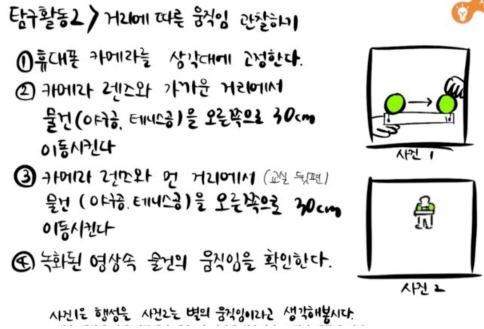 탐구활동2 > 거리에 따른 움직임 관찰하기
① 휴대폰 카메라를 삼각대에 고정한다.
② 카메라 렌즈와 가까운 거리에서
물건(야구공, 테니스공)을 오른쪽으로 30cm
이동시킨다
사건 1
③ 카메라 렌즈와 먼 거리에서 (교실 뒷편)
물건 (야구공, 테니스공)을 오른쪽으로 30cm
이동시킨다
④ 녹화된 영상속 물건의 움직임을 확인한다.
사건 2
사건1은 행성을 사건2는 별의 움직임이라고 생각해봅시다.